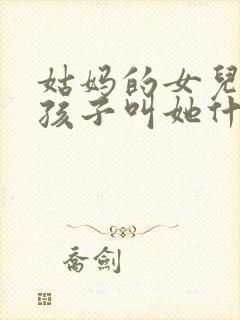 姑妈的女兒
孩子叫她什
喬劍